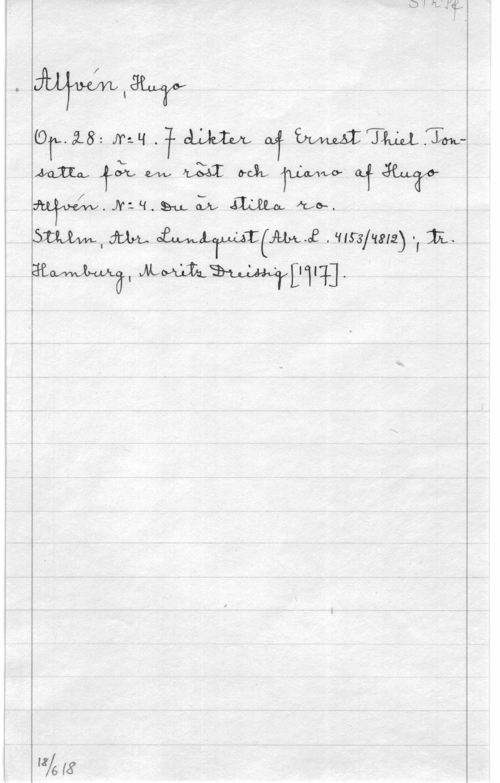 Alfvén, Hugo
Op. 28: N:4. 7 dikter af Ernest Thiel. Ton-
satta för en röst och piano af Hugo
Alfvén. N:4. Du är stilla ro.
Sthlm, Abr. Lundquist (Abr. L. 4153/4812); tr.
Hamburg, Moritz Dreissig [1917].
18/6 18